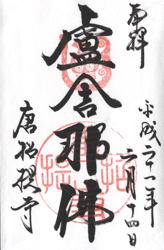 奉拝
平成二十一年
六月十四日
盧舎那佛
唐招提寺